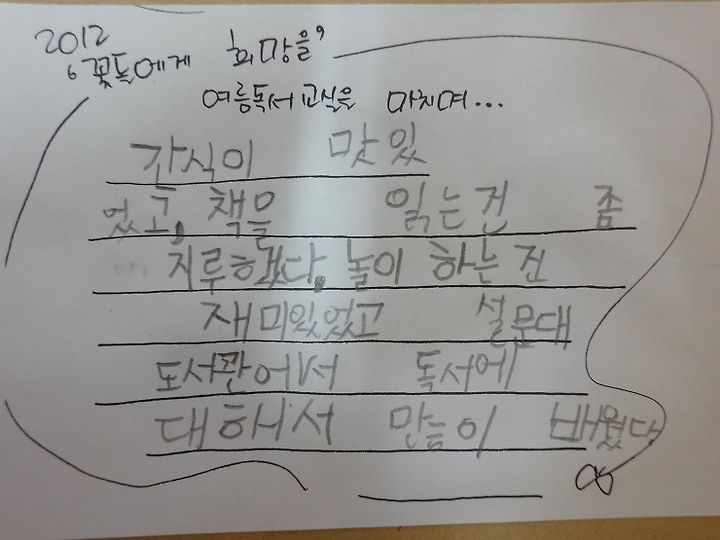 2012
‘꽃돔에게 희망을’
여름독서교실을 마치며...
간식이 맛있
었고, 책을 읽는건 좀
지루했다. 놀이 하는건
재미있었고 설문대
도서관에서 독서에
대해서 만능이 배웠다